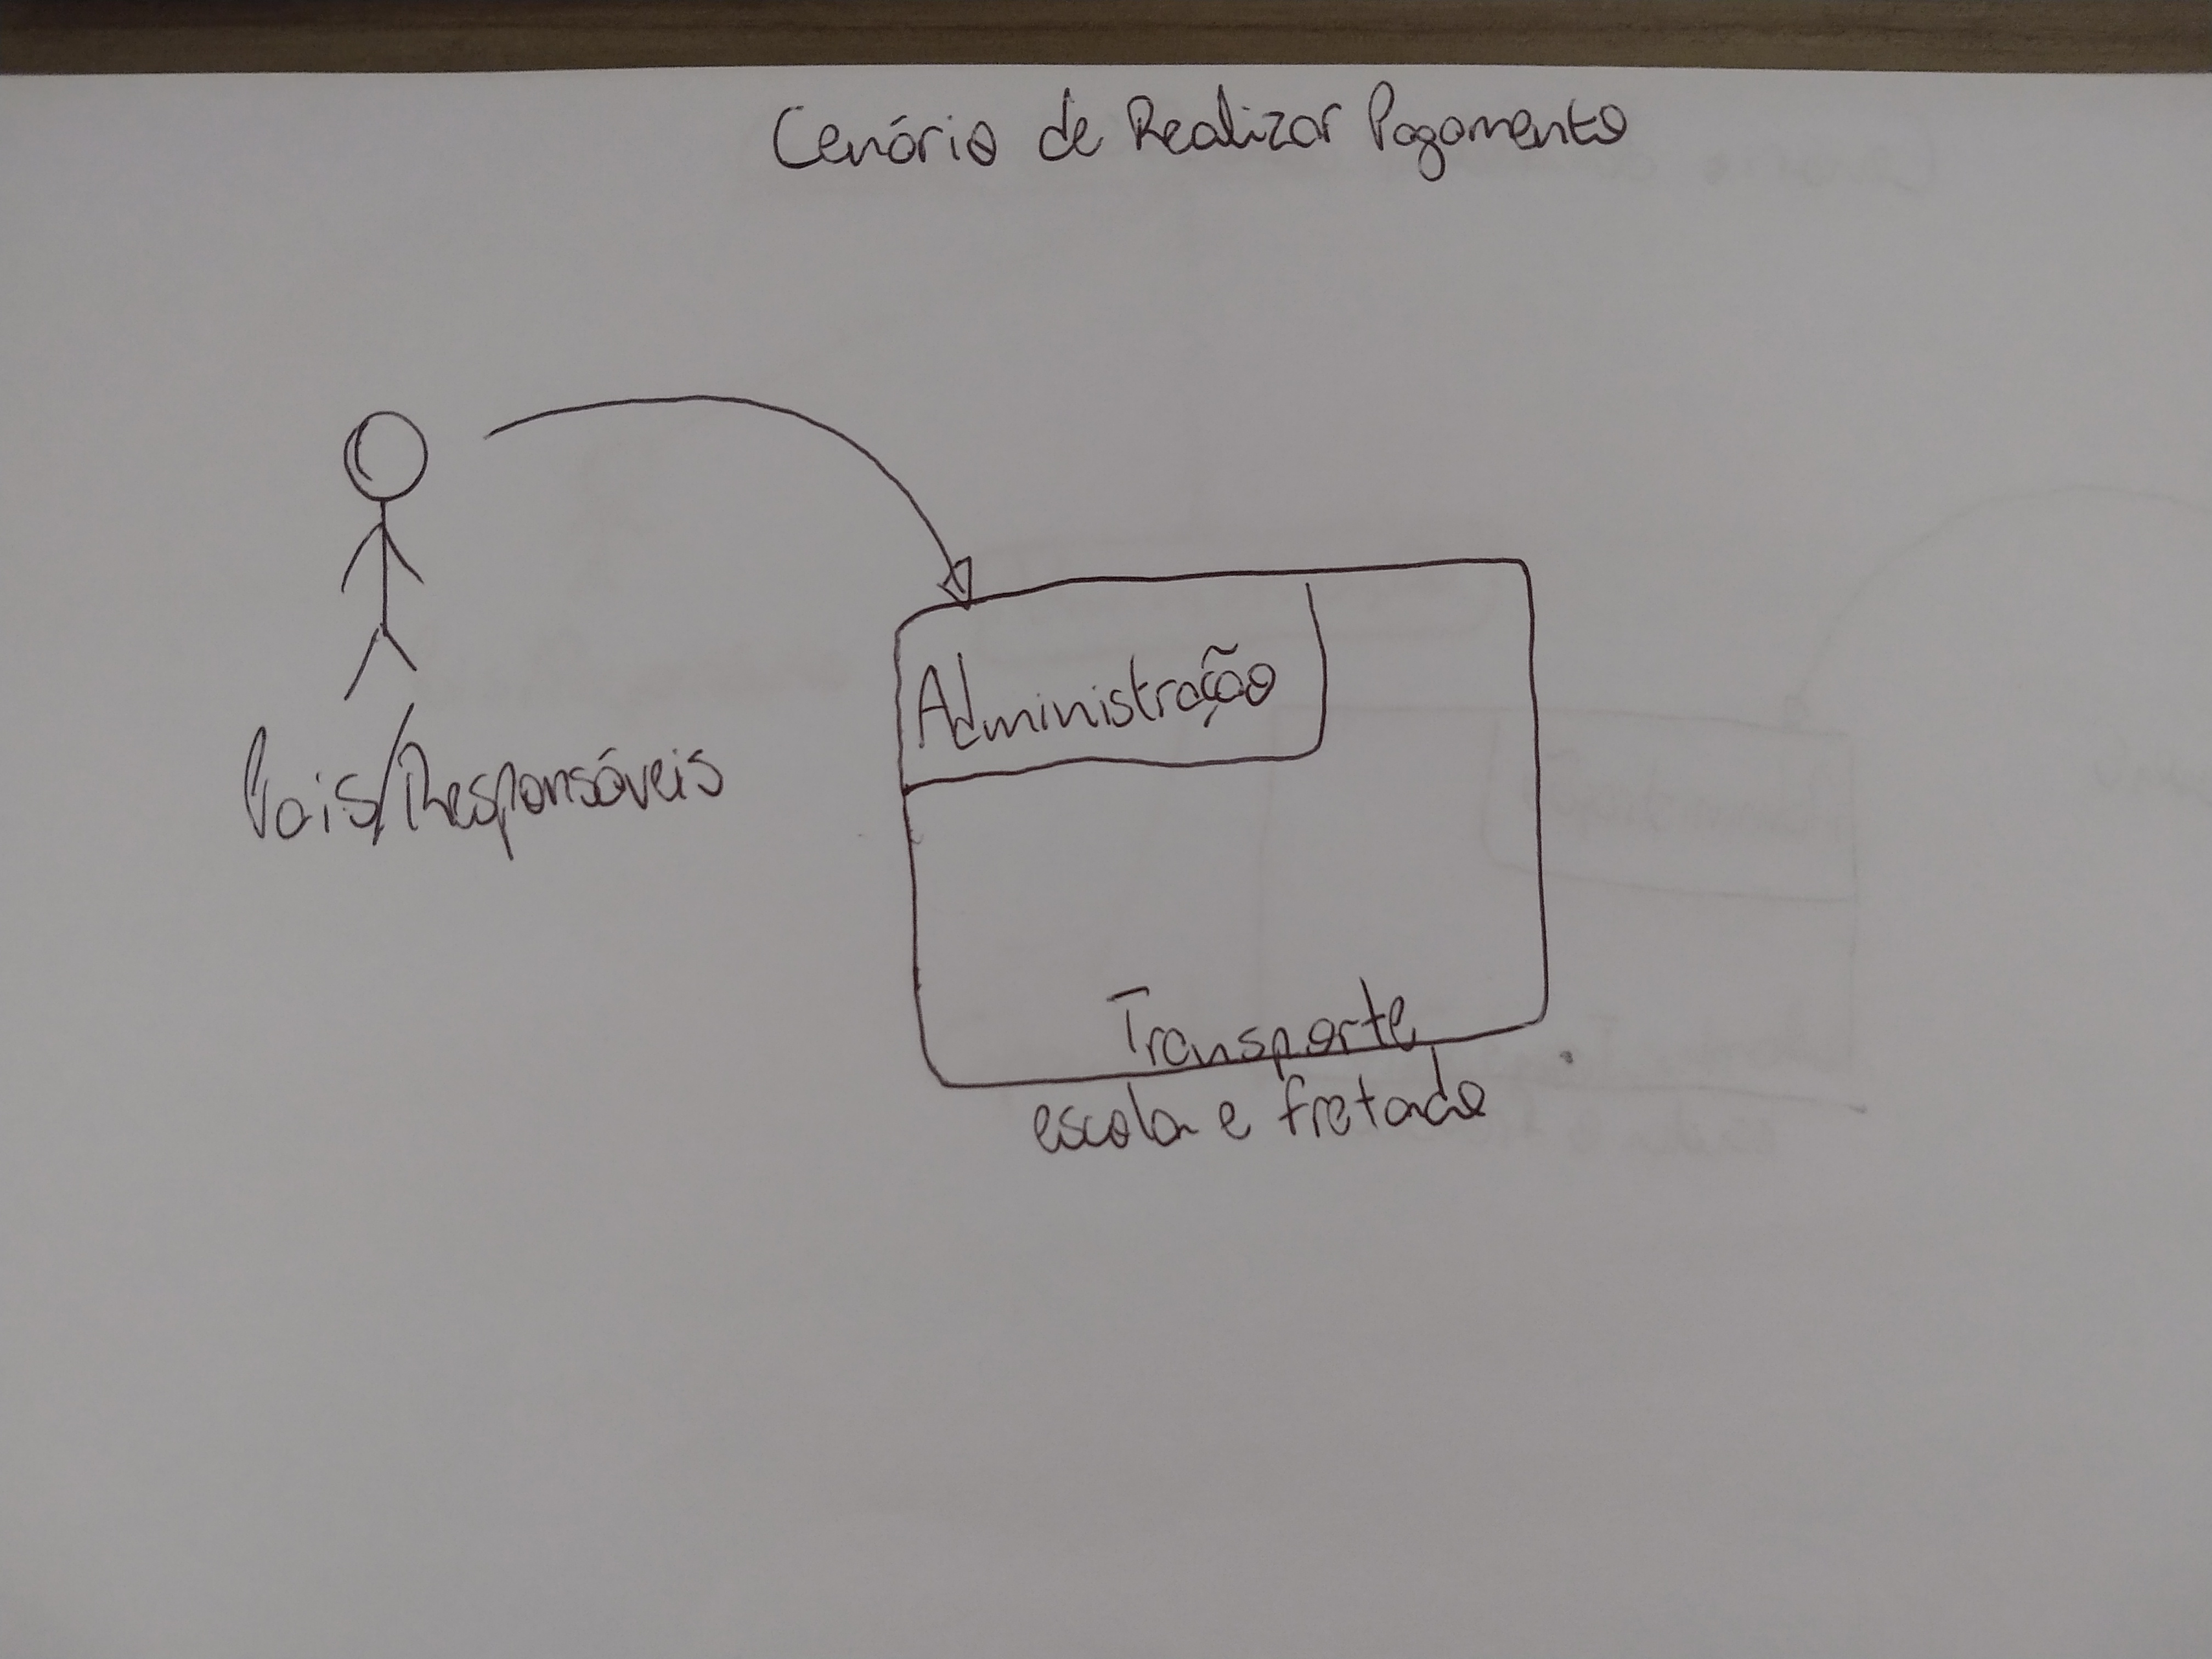 Cenário de Realizar Pagamento
Pais/Responsáveis
Administração
Transporte
escolar e fretado